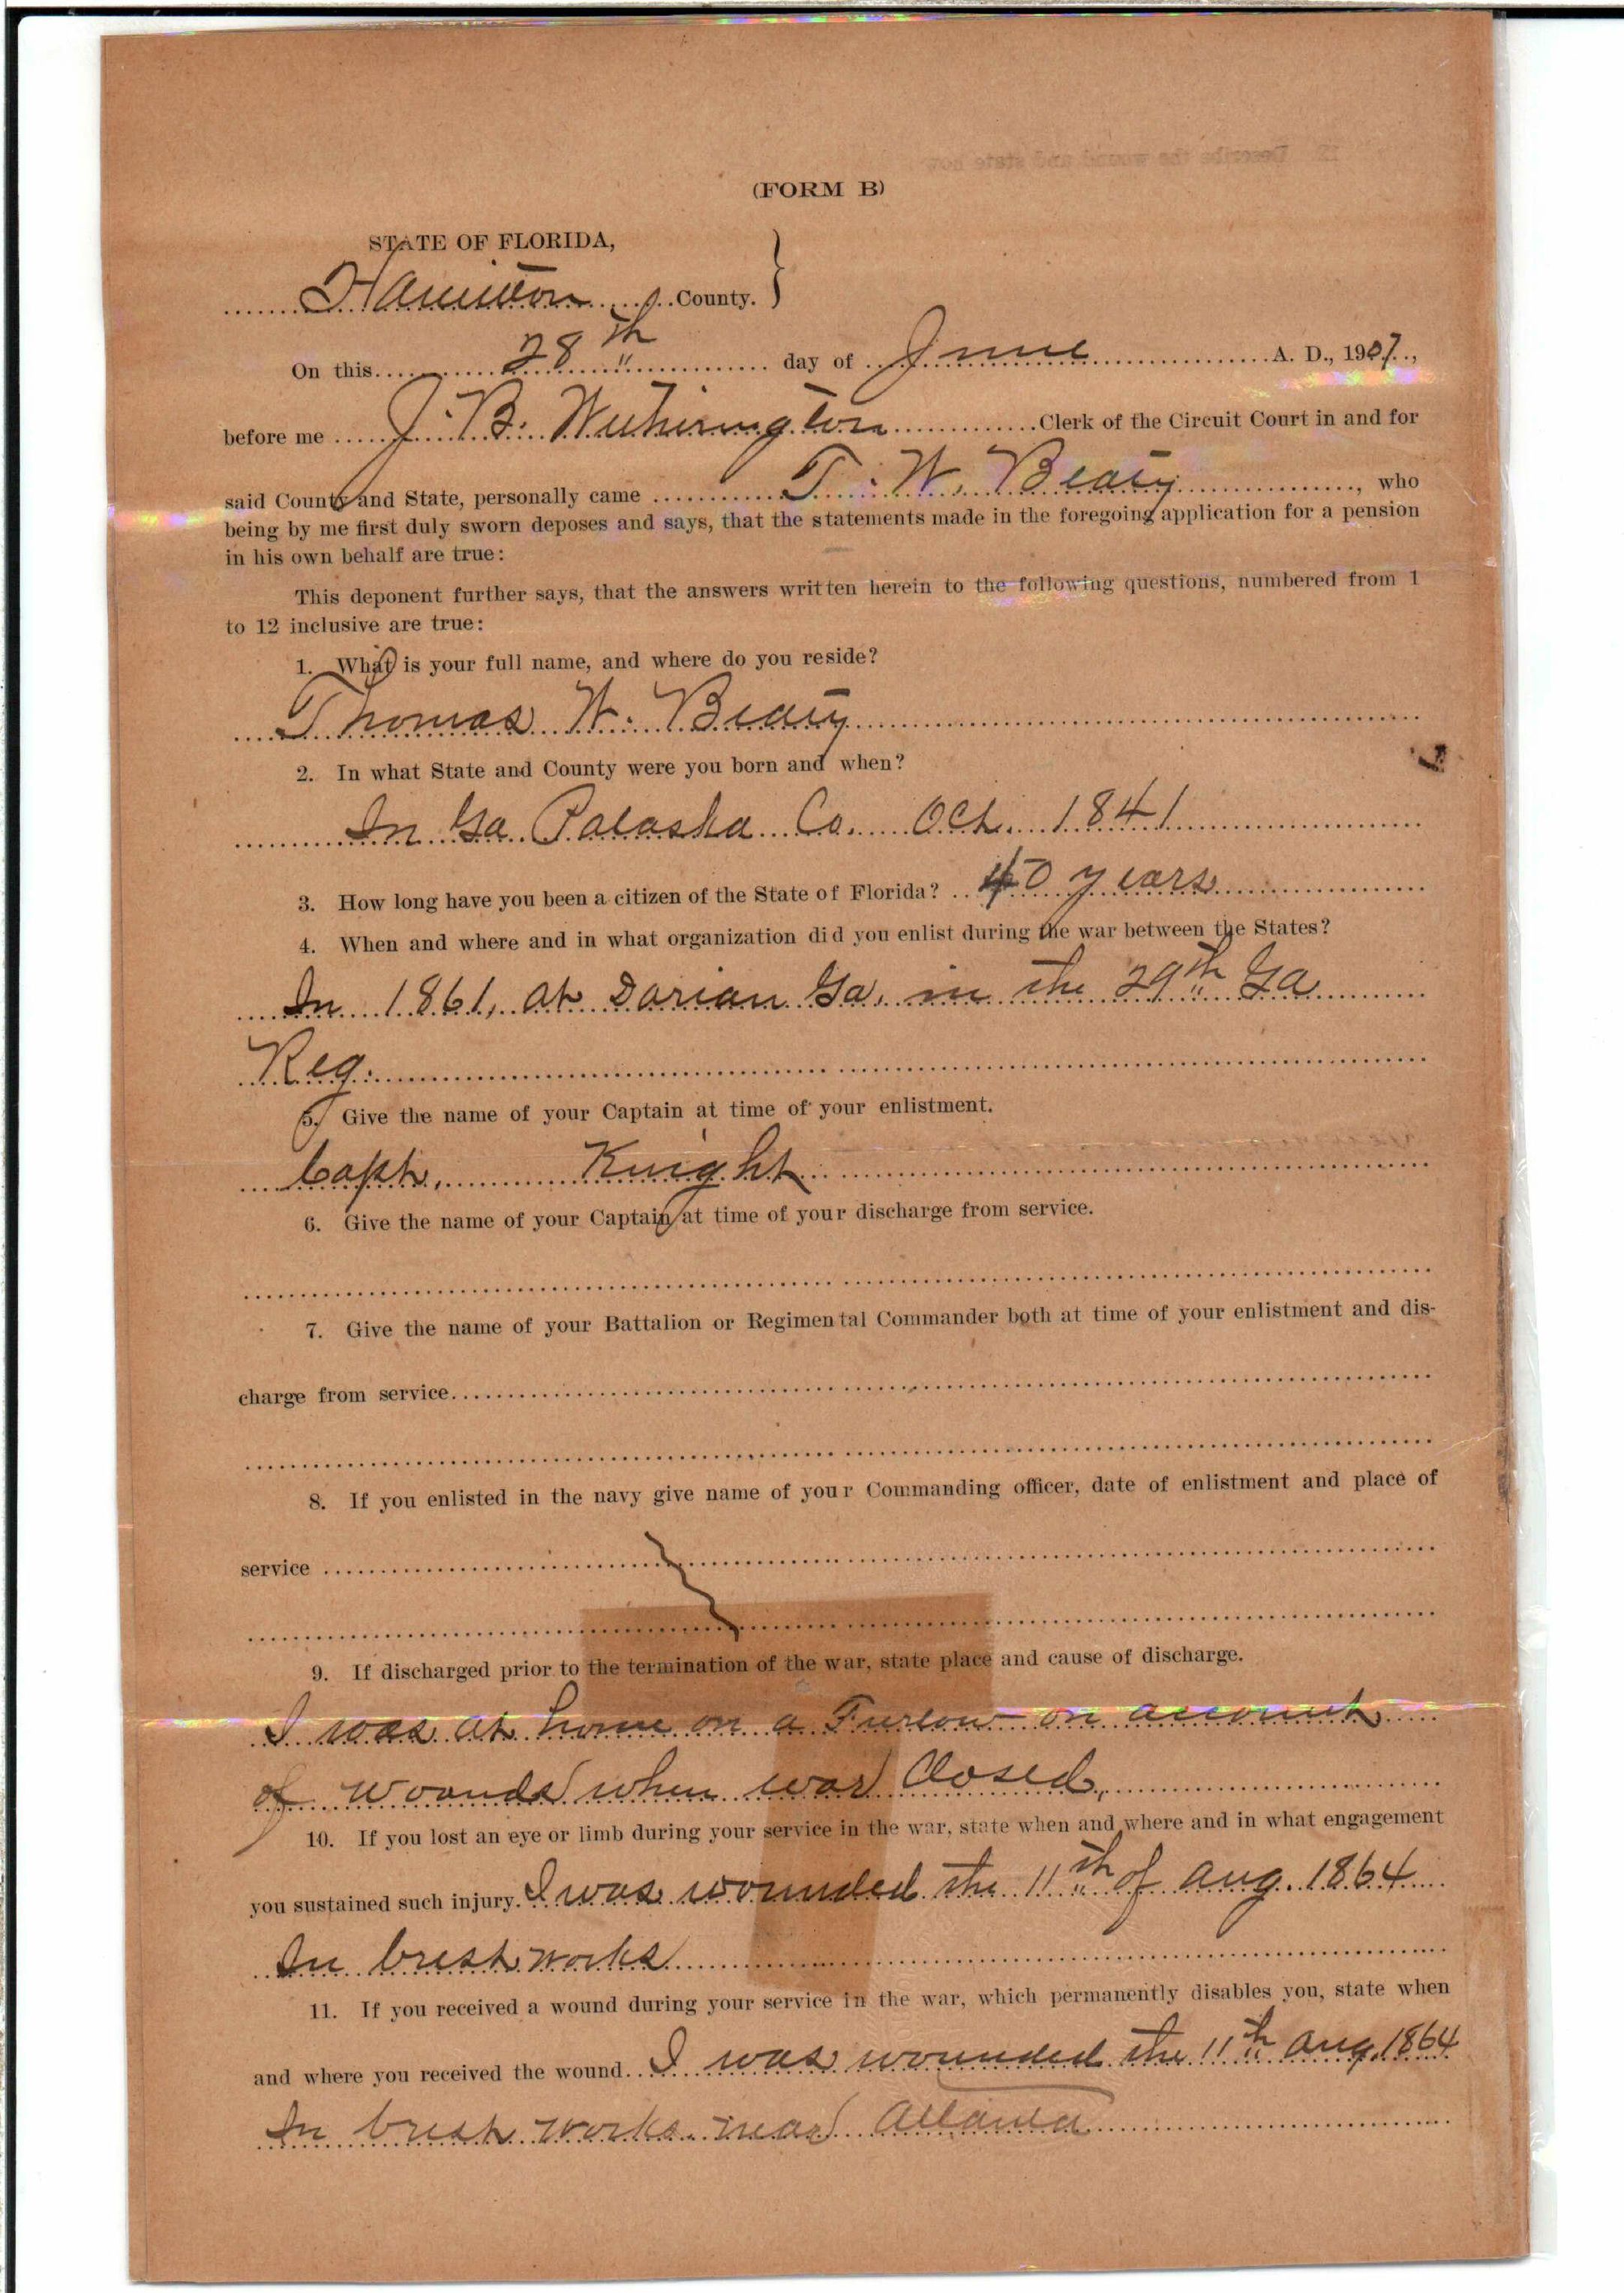 (FORM B)
STATE OF FLORIDA,
Hamilton County.
On this 28th day of June A. D., 1907,
before me J. B. Witherington Clerk of the Circuit Court in and for
said County and State, personally came T. W. Beaty, who
being by me first duly sworn deposes and says, that the statements made in the foregoing application for a pension
in his own behalf are true:
This deponent further says, that the answers written herein to the following questions, numbered from 1
to 12 inclusive are true:
1. What is your full name, and where do you reside?
Thomas W. Beaty
2. In what State and County were you born and when?
In Ga Palaska Co. Oct. 1841
3. How long have you been a citizen of the State of Florida? 40 years
4. When and where and in what organization did you enlist during the war between the States?
In 1861, at Darian Ga. in the 29th Ga
Reg.
5. Give the name of your Captain at time of your enlistment.
Capt. Knight
6. Give the name of your Captain at time of your discharge from service.
7. Give the name of your Battalion or Regimental Commander both at time of your enlistment and dis-
charge from service
8. If you enlisted in the navy give name of your Commanding officer, date of enlistment and place of
service
9. If discharged prior to the termination of the war, state place and cause of discharge.
I was at home on a Furlow on account
of wounds when war Closed,
10. If you lost an eye or limb during your service in the war, state when and where and in what engagement
you sustained such injury. I was wounded the 11th of Aug. 1864
In brest works
11. If you received a wound during your service in the war, which permanently disables you, state when
and where you received the wound. I was wounded the 11th Aug. 1864
In brest works near Atlanta